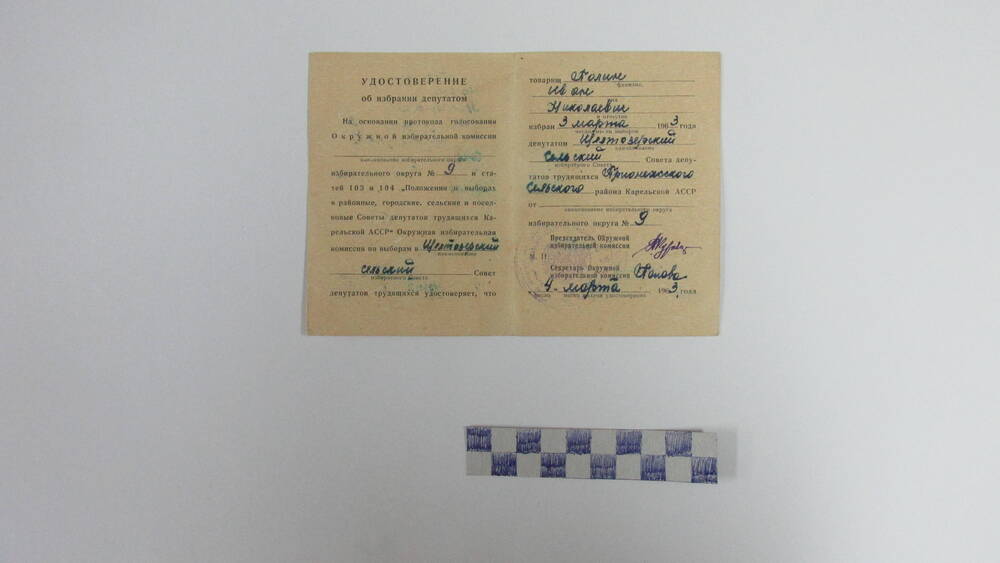 УДОСТОВЕРЕНИЕ
об избрании депутатом
На основании протокола голосования
Окружной избирательной комиссии
наименование избирательного округа
избирательного округа № 9 и ста-
тей 103 и 104 „Положения о выборах
в районные, городские, сельские и посел-
ковые Советы депутатов трудящихся Ка-
рельской АССР“ Окружная избирательная
комиссия по выборам в Шелтозерский
наименование
сельский Совет
избираемого Совета
депутатов трудящихся удостоверяет, что
товарищ
фамилия,
Иван
имя
Николаевич
и отчество
избран 3 марта 1963 года
число, месяц выборов
депутатом Шелтозерский
наименование
Сельский Совета депу-
избираемого Совета
татов трудящихся Прионежского
Сельского района Карельской АССР
от
наименование избирательного округа
избирательного округа № 9
Председатель Окружной
избирательной комиссии
М. П.
Секретарь Окружной
избирательной комиссии Попова
4. марта 1963 года
число месяц выдачи удостоверения